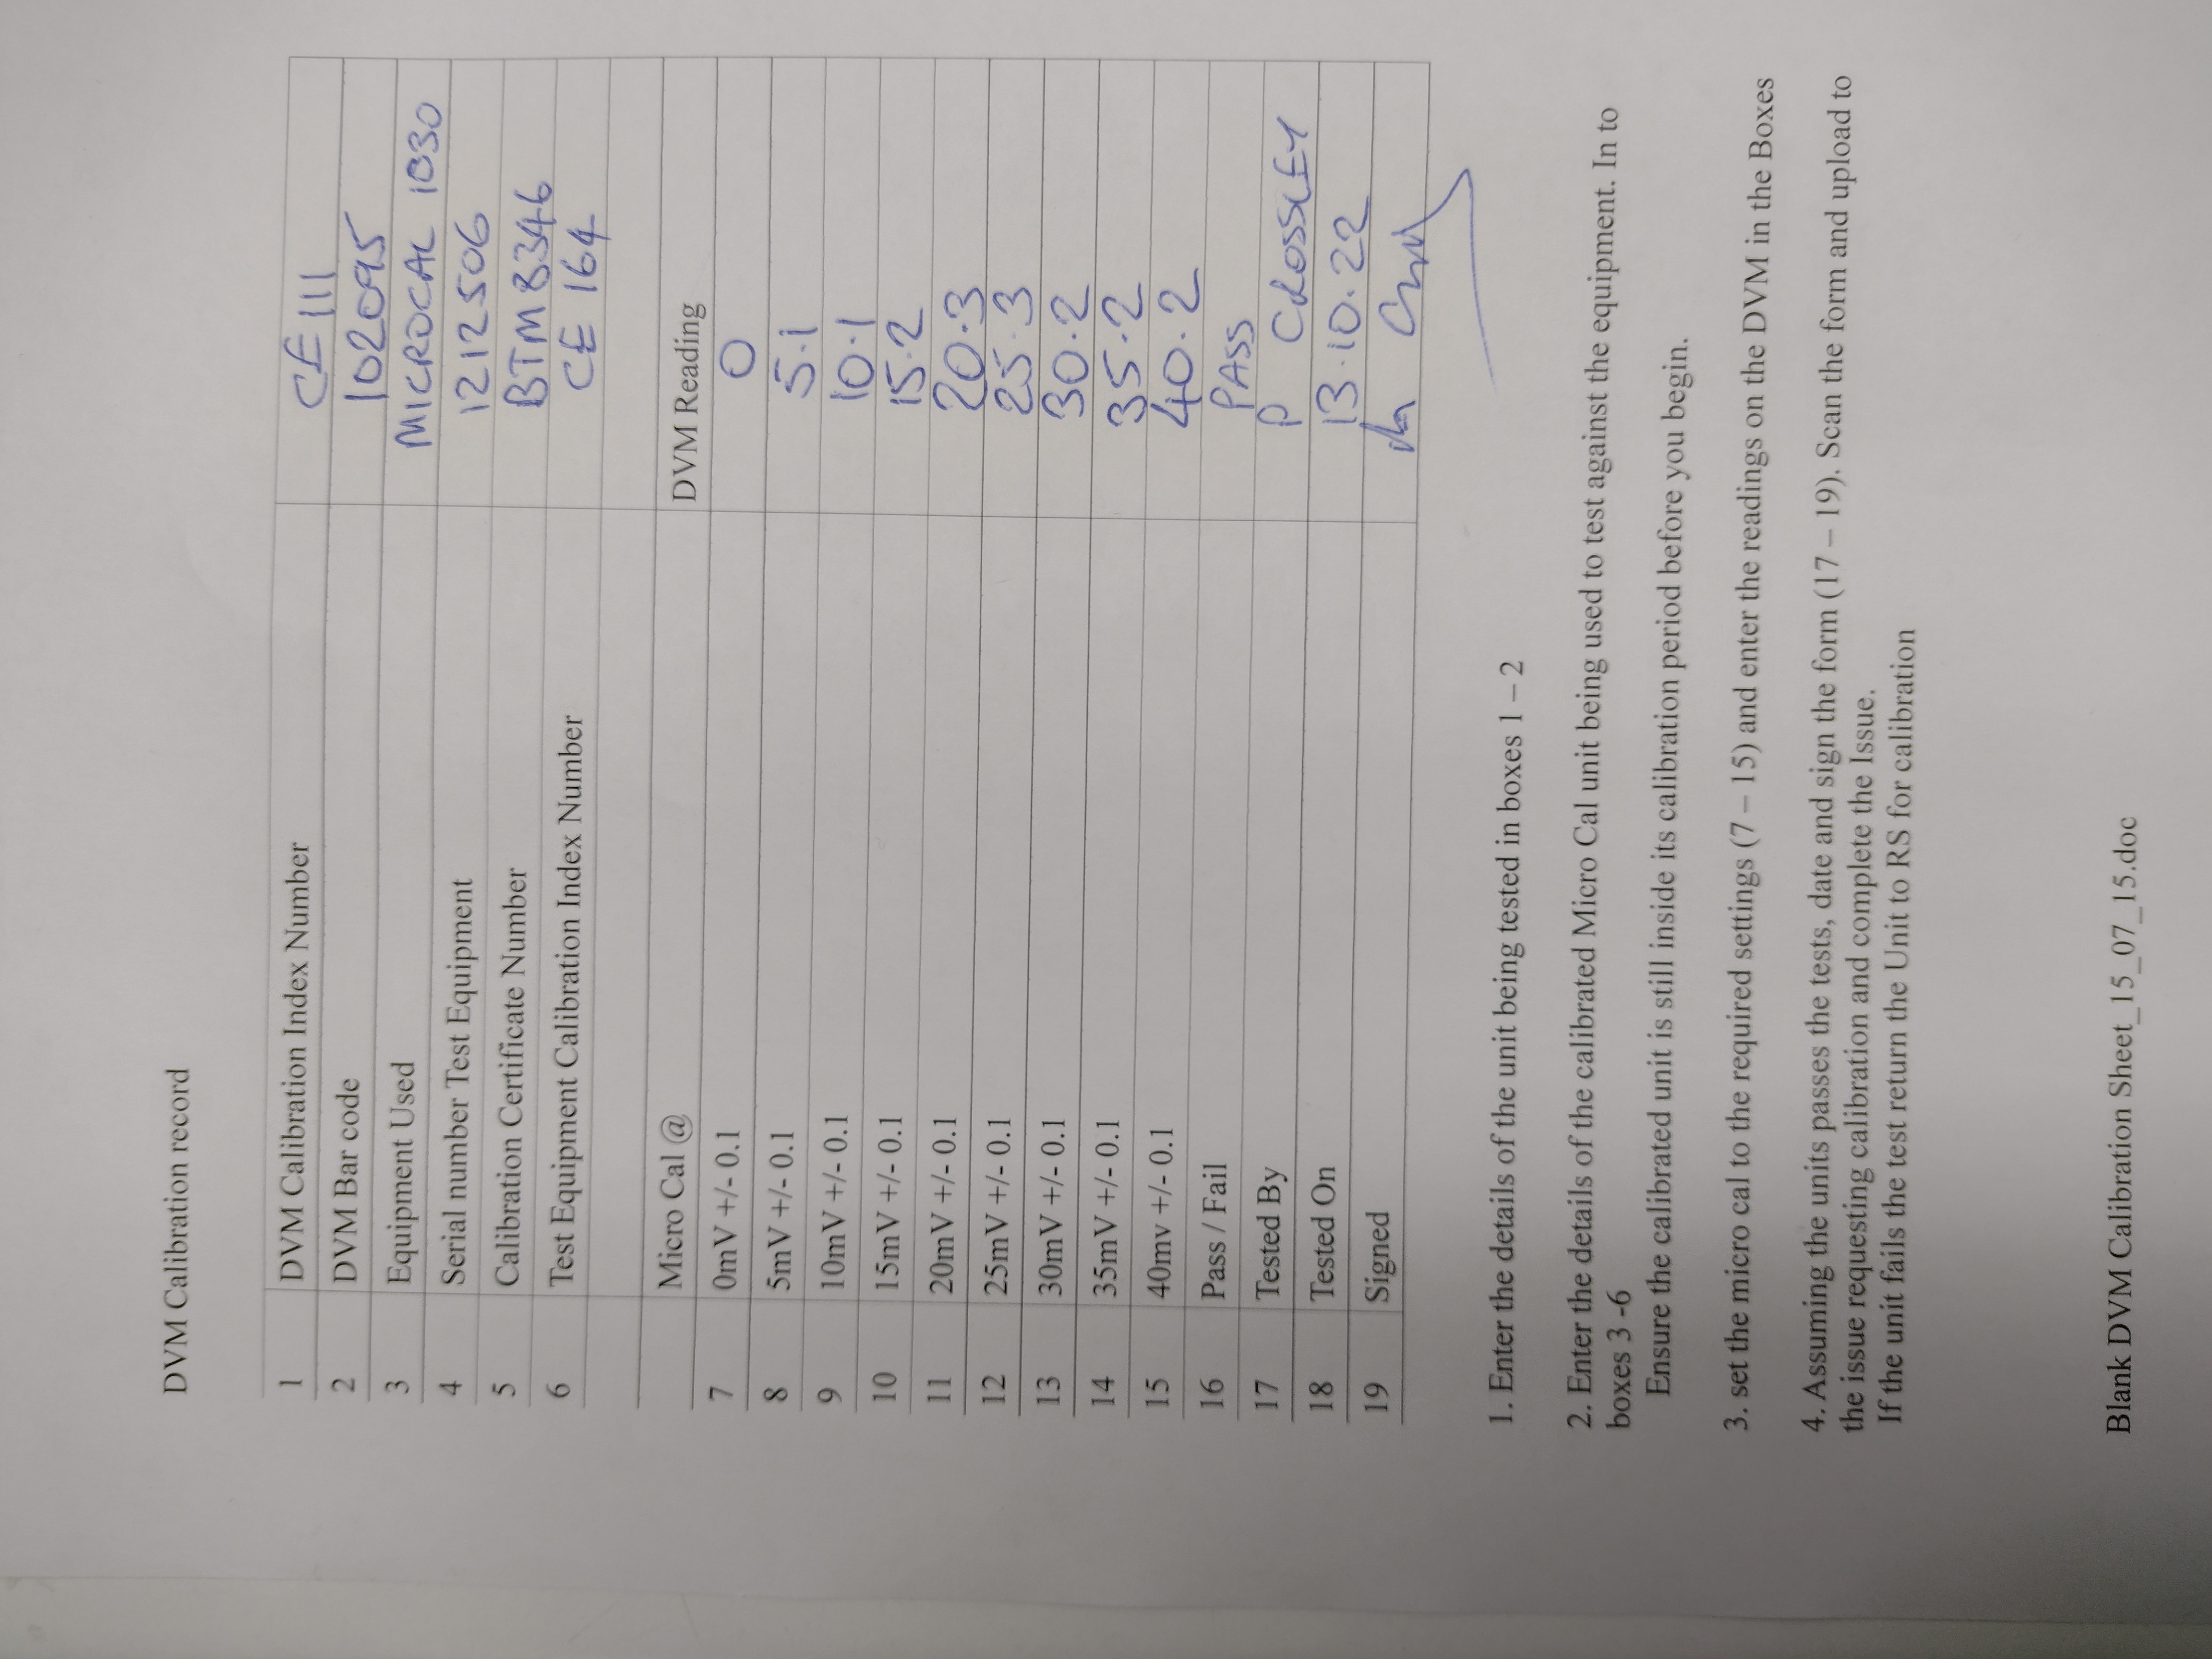 DVM Calibration record
1 DVM Calibration Index Number CE 111
2 DVM Bar code 102095
3 Equipment Used MICROCAL 1030
4 Serial number Test Equipment 1212506
5 Calibration Certificate Number BTM8346
6 Test Equipment Calibration Index Number CE 164
Micro Cal @ DVM Reading
7 0mV +/- 0.1 0
8 5mV +/- 0.1 5.1
9 10mV +/- 0.1 10.1
10 15mV +/- 0.1 15.2
11 20mV +/- 0.1 20.3
12 25mV +/- 0.1 25.3
13 30mV +/- 0.1 30.2
14 35mV +/- 0.1 35.2
15 40mv +/- 0.1 40.2
16 Pass / Fail PASS
17 Tested By P CROSSLEY
18 Tested On 13.10.22
19 Signed
1. Enter the details of the unit being tested in boxes 1 – 2
2. Enter the details of the calibrated Micro Cal unit being used to test against the equipment. In to
boxes 3 -6
Ensure the calibrated unit is still inside its calibration period before you begin.
3. set the micro cal to the required settings (7 – 15) and enter the readings on the DVM in the Boxes
4. Assuming the units passes the tests, date and sign the form (17 – 19). Scan the form and upload to
the issue requesting calibration and complete the Issue.
If the unit fails the test return the Unit to RS for calibration
Blank DVM Calibration Sheet_15_07_15.doc